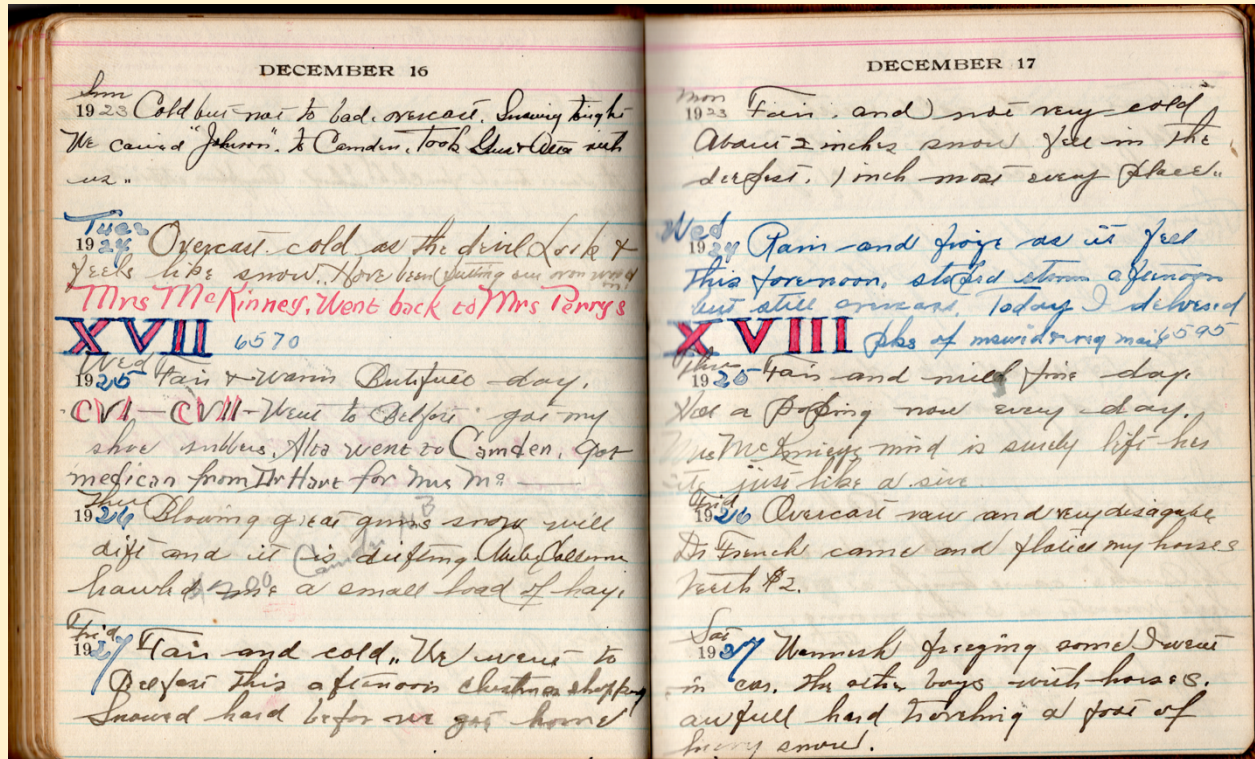 DECEMBER 16
Sun
1923 Cold but not to bad. overcast. Snowing tonight
We carried "Johnson". to Camden. Took Gus & Alta with
us..
Tues
1924 Overcast. cold as the devil Looks &
feels like snow. Have been putting our oven wood
in
Mrs McKinney. Went back to Mrs Perrys
XVII 6570
Wed
1925 Fair & Warm Butifull day.
CVI — CVII - Went to Belfast got my
shoe rubbers. Alta went to Camden. got
medican from Dr Hart for Mrs Mc ——
Thu
1926 Blowing great guns snow will
dift and it is difting
hawled me a small load of hay.
Frid
1927 Fair and cold.. We went to
Belfast this afternoon chrstmas shopping
Snowed hard befor we got home
DECEMBER 17
Mon
1923 Fair. and not very cold
About 2 inches snow fell in the
deepest. 1 inch most every place..
Wed
1924 Rain and froze as it fell
this forenoon. stoped storm afternoon
but still overcast. Today I delivered
XVIII pks of mewid & reg mail 6595
Thu
1925 Fair and mild fine day.
Has a poping now every day.
Mrs McKinneys mind is surely left her
its just like a sive
Frid
1926 Overcast raw and very disagable
Dr French came and floated my horses
teeth $2.
Sat
1927 Warmish freezing some I went
in car. the other boys with horses.
awfull hard traveling a foot of
heavy snow.